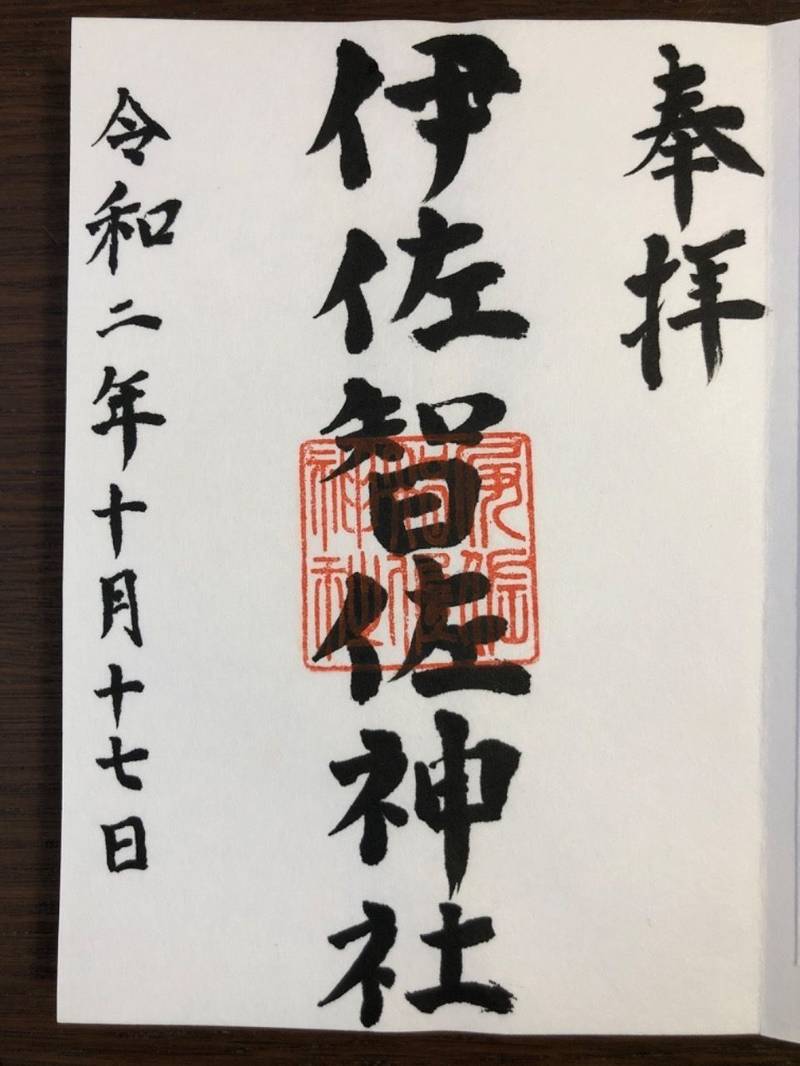 奉拝
伊佐智佐神社
令和二年十月十七日